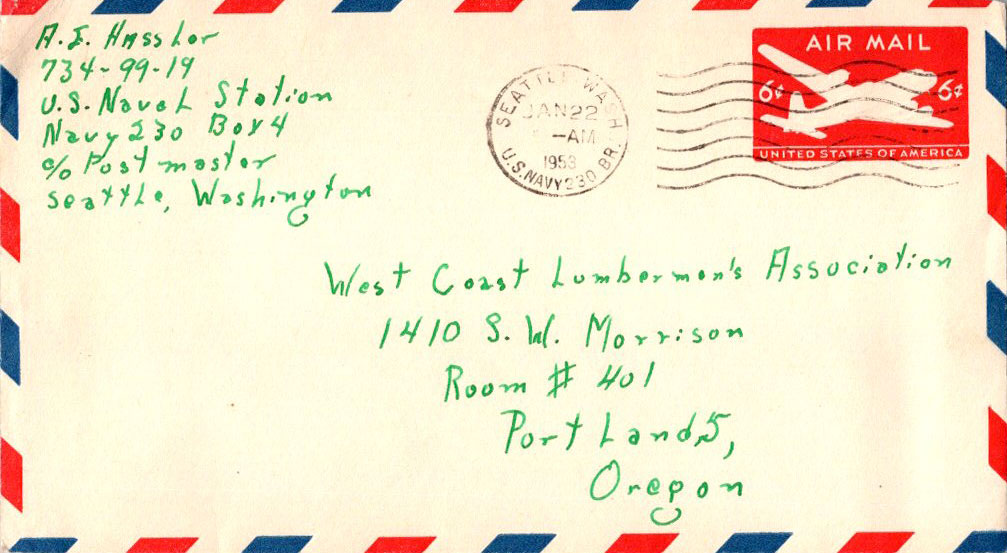 A. I. Hassler
734-99-19
U.S. Naval Station
Navy 230 Box 4
c/o Postmaster
Seattle, Washington
SEATTLE WASH.
JAN 22
-AM
1953
U.S. NAVY 230 BR.
AIR MAIL
6¢ 6¢
UNITED STATES OF AMERICA
West Coast Lumbermen's Association
1410 S.W. Morrison
Room # 401
Portland 5,
Oregon